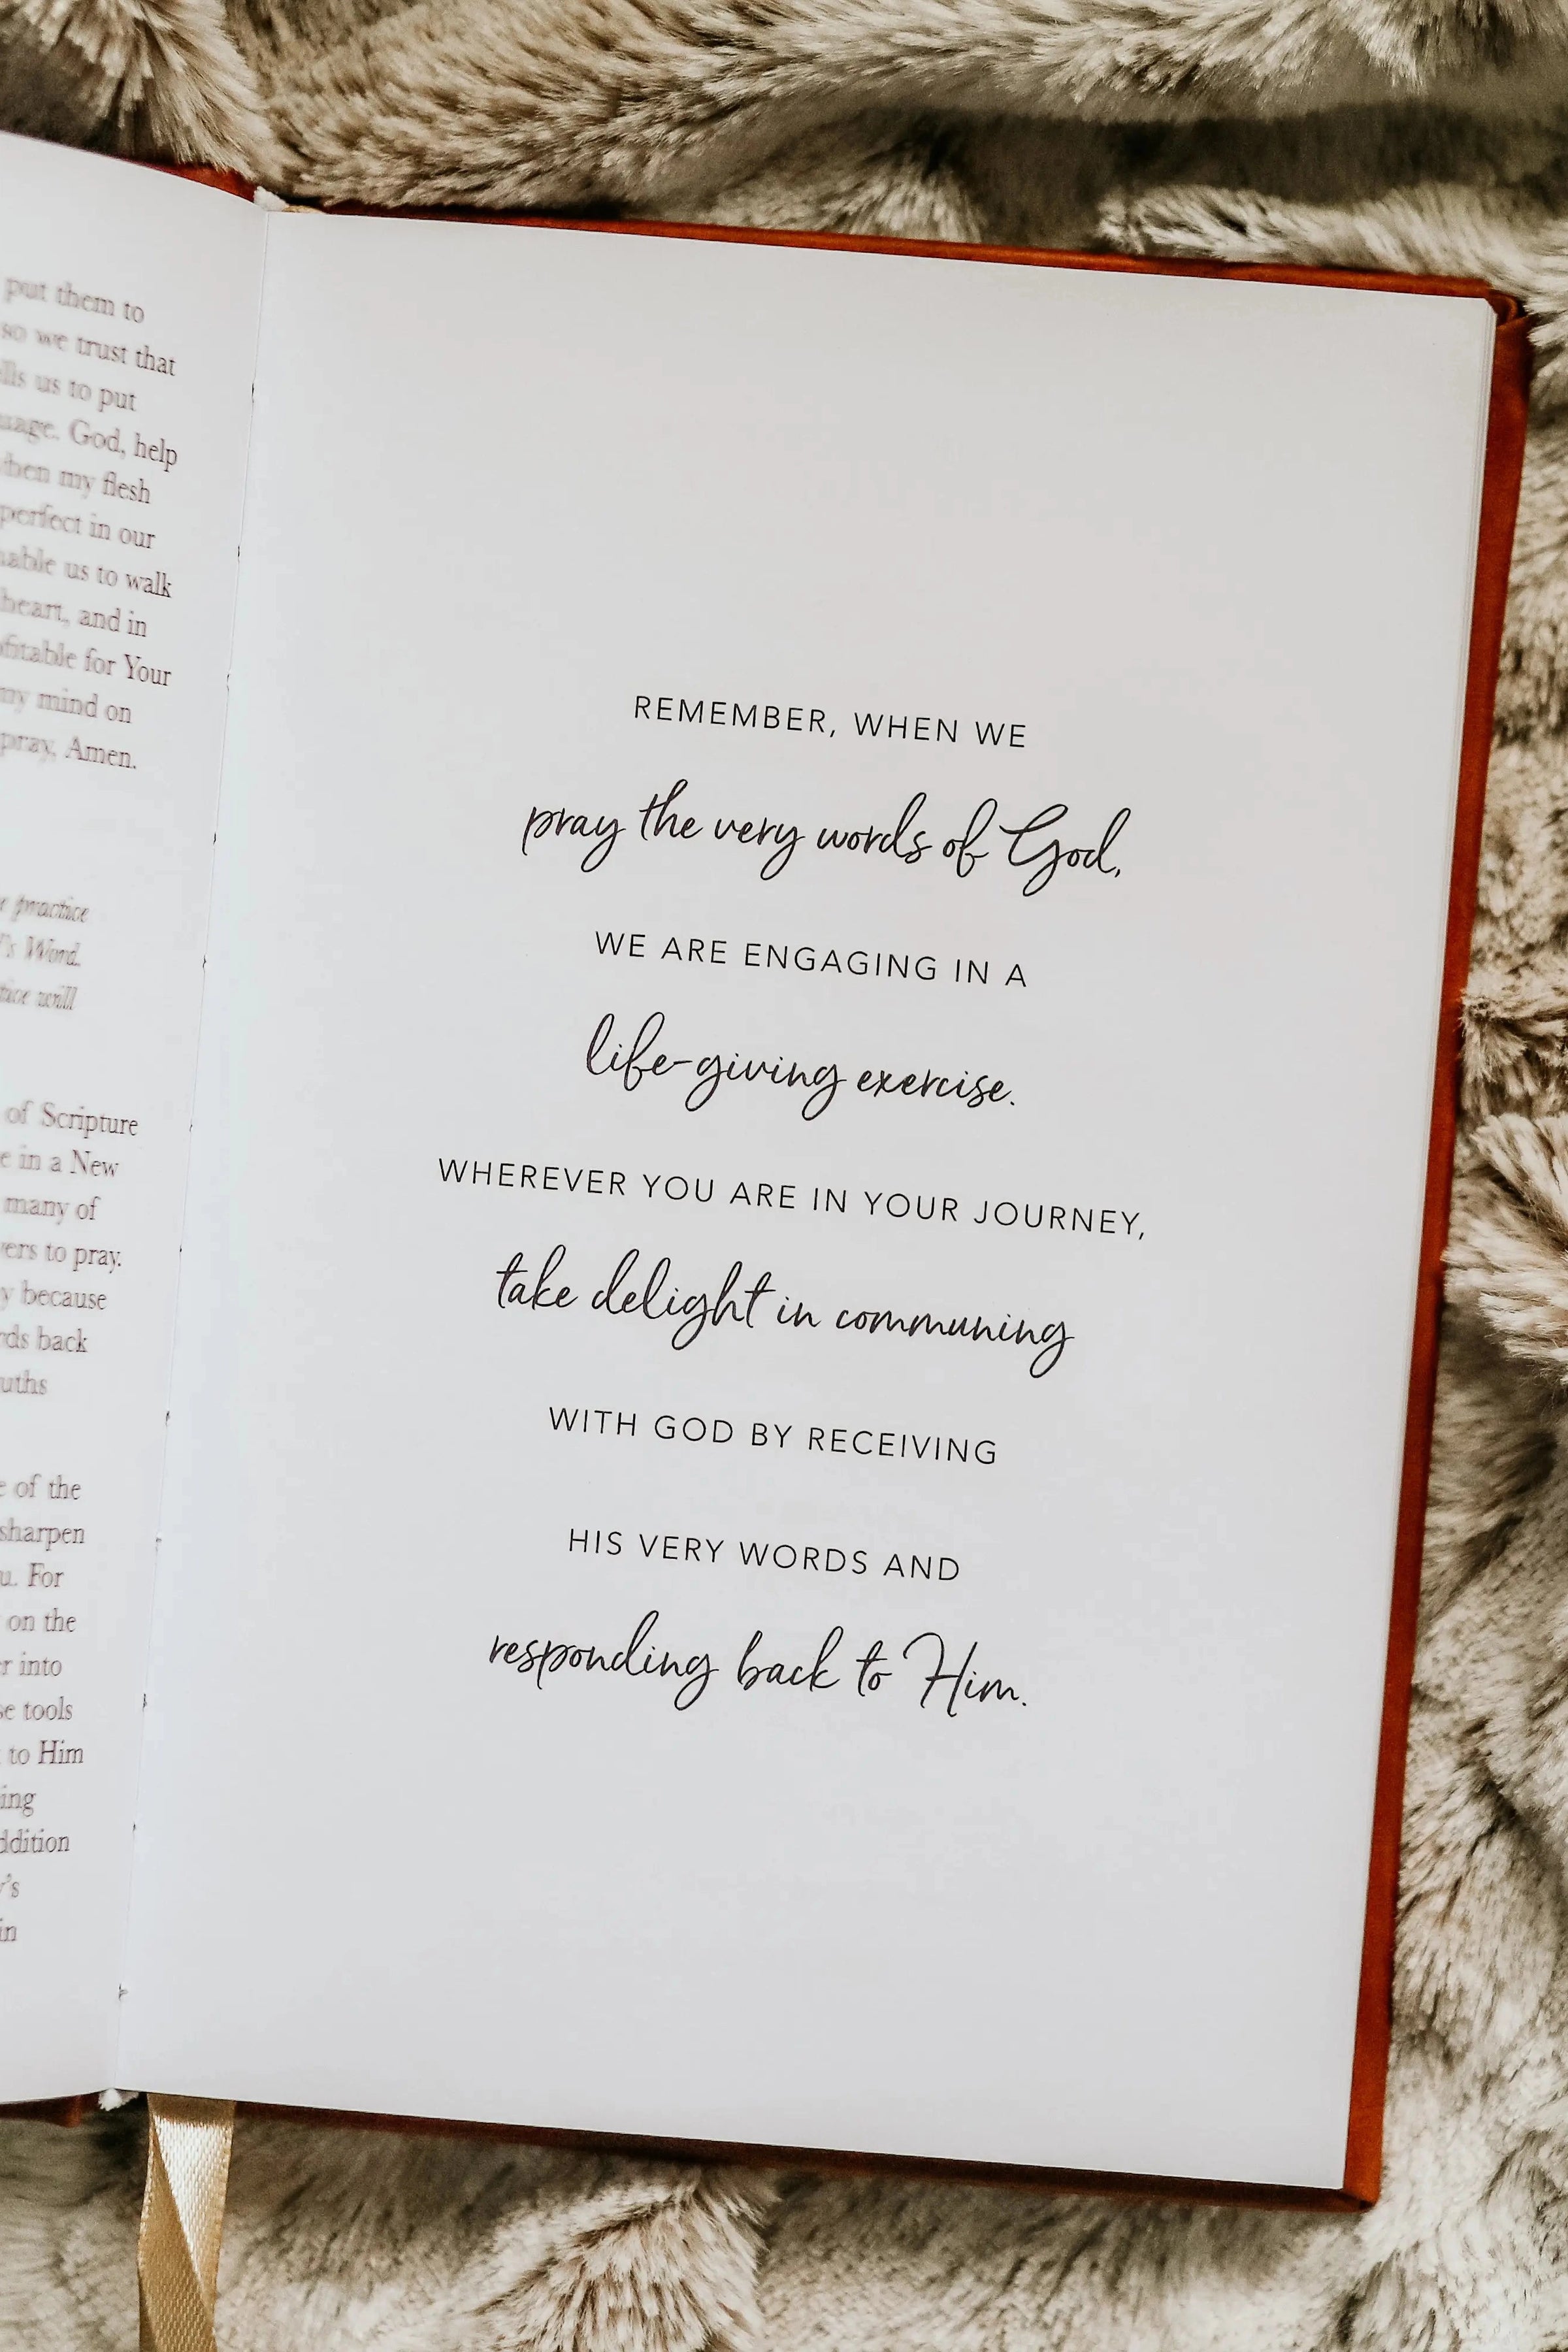 put them to
so we trust that
us to put
God, help
my flesh
perfect in our
us to walk
heart, and in
for Your
my mind on
pray, Amen.
practice
Word.
will
of Scripture
in a New
many of
to pray.
because
back
of the
sharpen
For
on the
into
tools
to Him
in
REMEMBER, WHEN WE
pray the very words of God,
WE ARE ENGAGING IN A
life-giving exercise.
WHEREVER YOU ARE IN YOUR JOURNEY,
take delight in communing
WITH GOD BY RECEIVING
HIS VERY WORDS AND
responding back to Him.